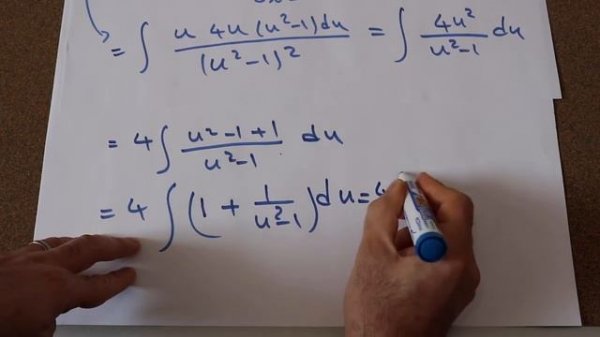 = ∫ u 4u (u²-1) du / (u²-1)² = ∫ 4u² / u²-1 du
= 4 ∫ u²-1+1 / u²-1 du
= 4 ∫ (1 + 1 / u²-1) du = 4